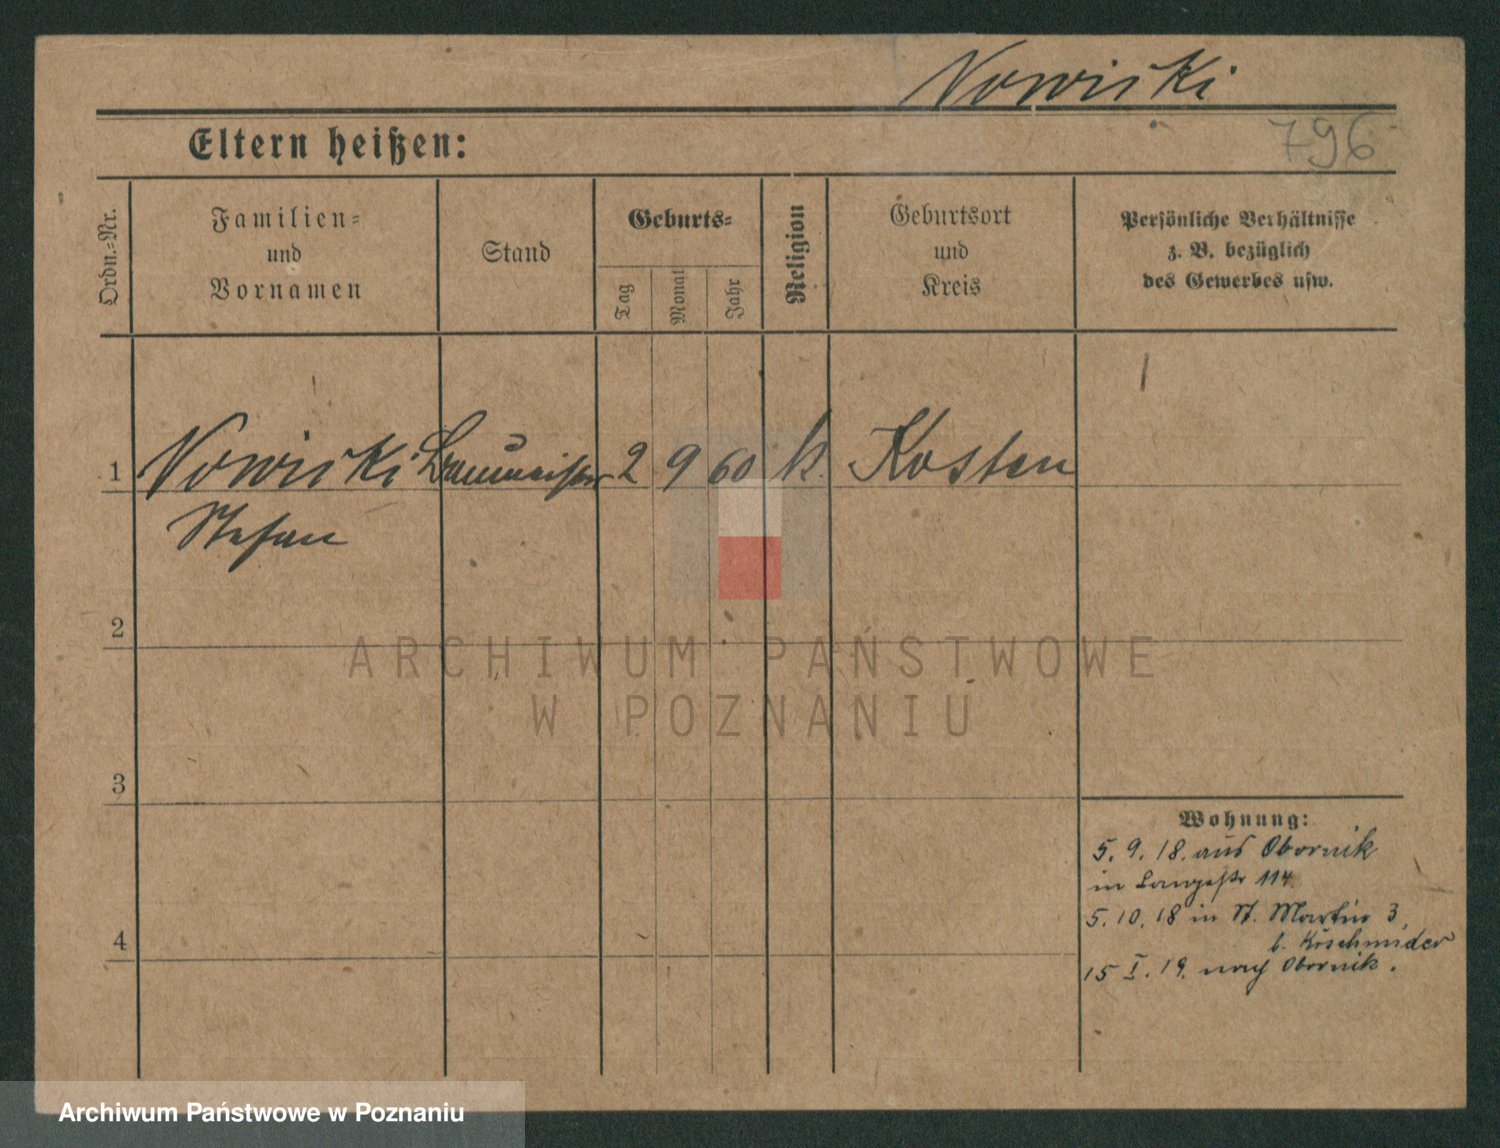 Nowiski
Eltern heißen:
796
Ordn.-Nr.
Familien-
und
Vornamen
Stand
Geburts-
Tag
Monat
Jahr
Religion
Geburtsort
und
Kreis
Persönliche Verhältnisse
z. B. bezüglich
des Gewerbes usw.
1 Nowiski Baumeister 2 9 60 k. Kosten
Stefan
2
ARCHIWUM PAŃSTWOWE
W POZNANIU
3
Wohnung:
5. 9. 18. aus Obornik
in Langestr 114.
5. 10. 18 in St. Martin 3,
b. Kirschmider
4
15 I. 19. nach Obornik.
Archiwum Państwowe w Poznaniu